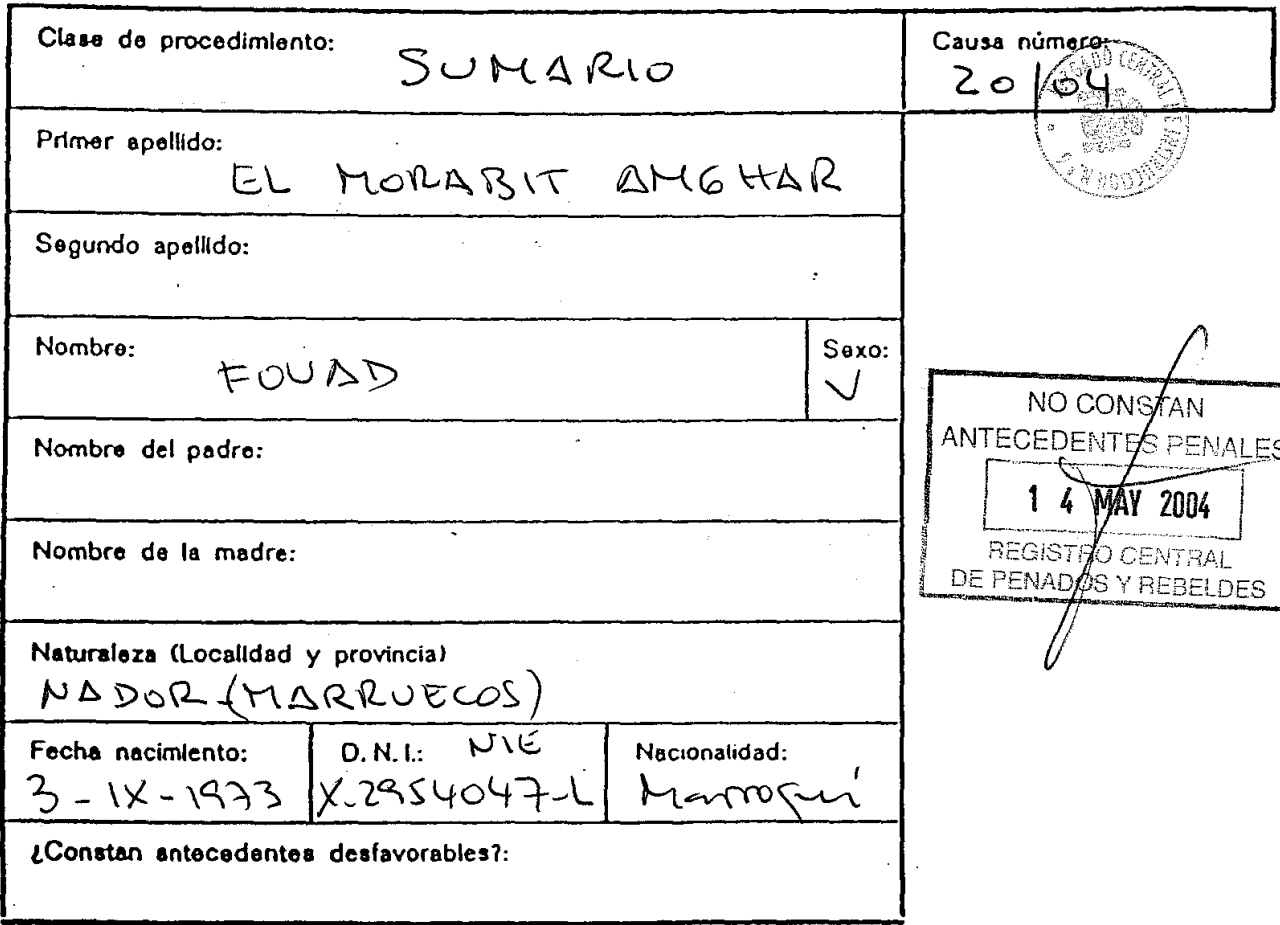 Clase de procedimiento:
SUMARIO
Causa número:
20/04
JUZGADO CENTRAL DE INSTRUCCION N.º 6
Primer apellido:
EL MORABIT AMGHAR
Segundo apellido:
Nombre:
FOUAD
Sexo:
V
Nombre del padre:
Nombre de la madre:
Naturaleza (Localidad y provincia)
NADOR (MARRUECOS)
Fecha nacimiento:
3-IX-1973
D.N.I.: NIE
X-2954047-L
Nacionalidad:
Marroquí
¿Constan antecedentes desfavorables?:
NO CONSTAN
ANTECEDENTES PENALES
14 MAY 2004
REGISTRO CENTRAL
DE PENADOS Y REBELDES